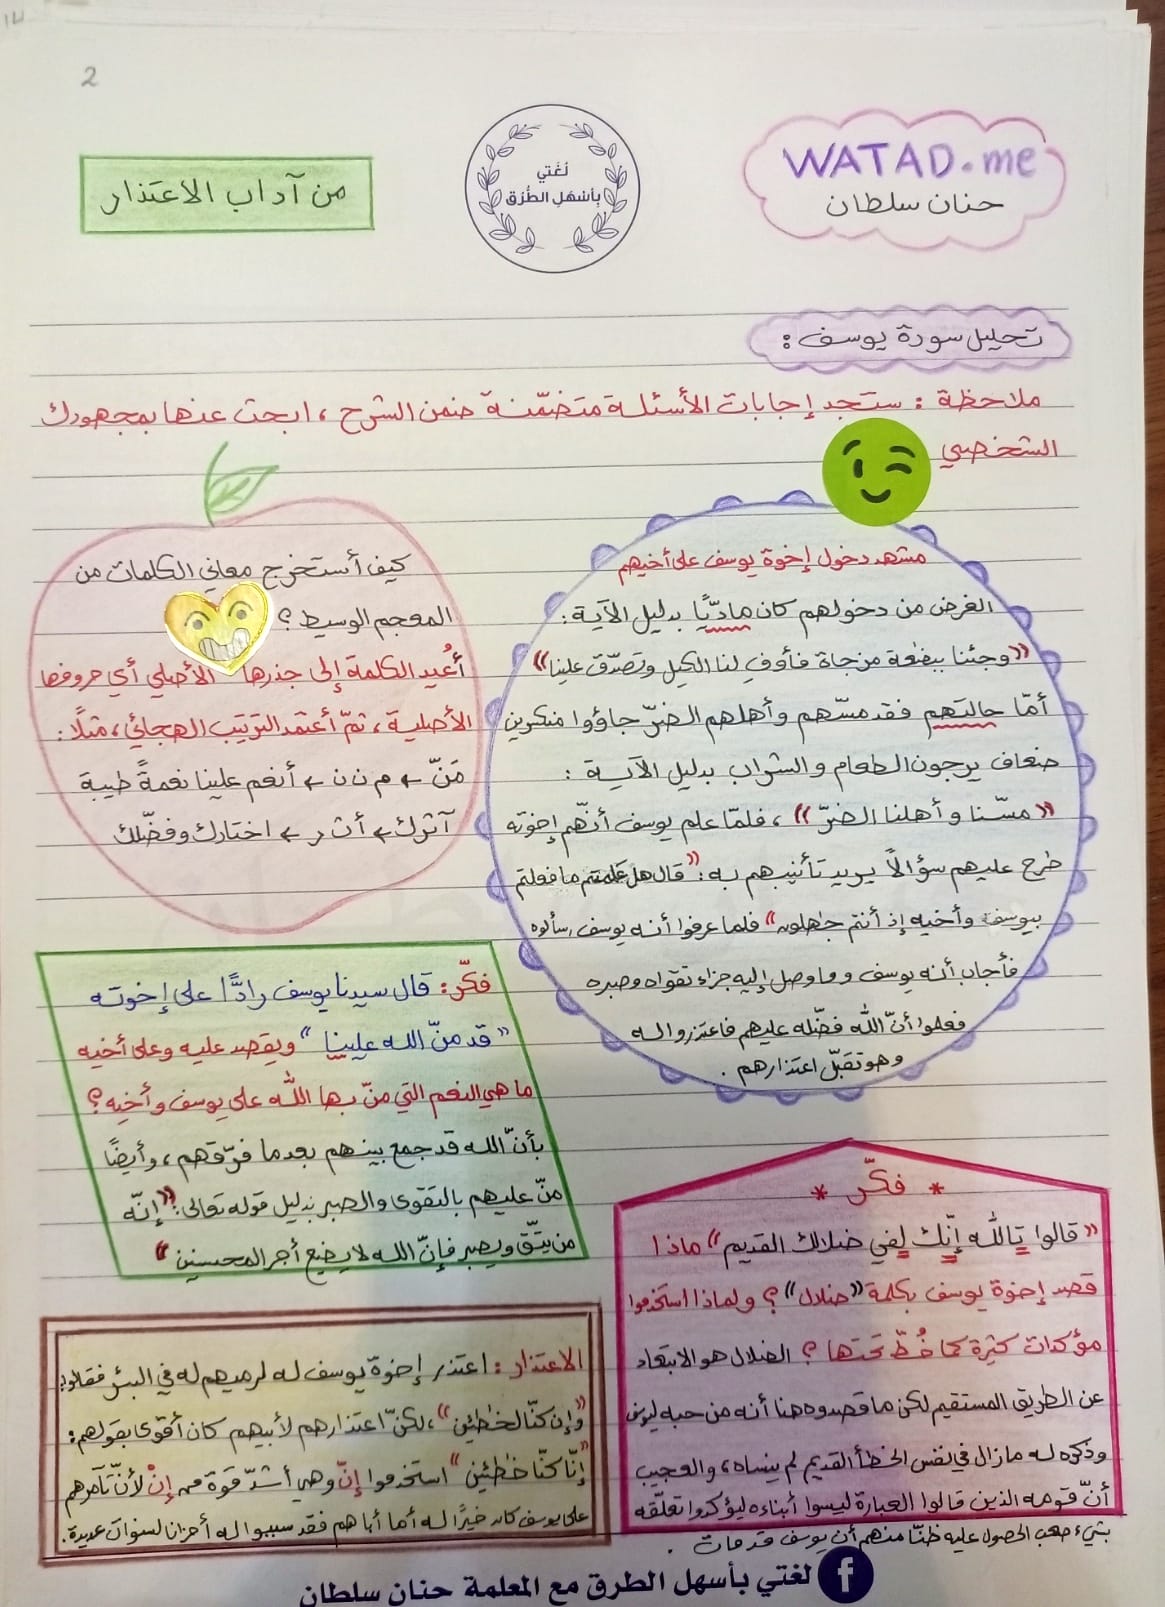 2
WATAD.me
حنان سلطان
لُغَتي
بِأَسْهَلِ الطُّرُق
من آداب الاعتذار
تحليل سورة يوسف :
ملاحظة : ستجد إجابات الأسئلة متضمّنة ضمن الشرح ، ابحث عنها بمجهودك
الشخصي
مشهد دخول إخوة يوسف على أخيهم
الغرض من دخولهم كان ماديًّا بدليل الآية :
«وجئنا ببضٰعة مزجاة فأوفِ لنا الكيل وتصدّق علينا»
أمّا حالتهم فقد مسّهم وأهلهم الضرّ جاؤوا منكسرين
ضعاف يرجون الطعام والشراب بدليل الآية :
«مسّنا وأهلنا الضرّ» ، فلمّا علم يوسف أنّهم إخوته
طرح عليهم سؤالًا يريد تأنيبهم به : "قال هل علمتم ما فعلتم
بيوسف وأخيه إذ أنتم جٰهلون" فلما عرفوا أنه يوسف سألوه
فأجاب أنه يوسف وما وصل إليه جزاء تقواه وصبره
فعلموا أنّ الله فضّله عليهم فاعتذروا له
وهو تقبّل اعتذارهم .
كيف أستخرج معاني الكلمات من
المعجم الوسيط ؟
أُعيد الكلمة إلى جذرها الأصلي أي حروفها
الأصلية ، ثمّ أعتمد الترتيب الهجائي ، مثلًا :
مَنّ ← م ن ن ← أنعم علينا نعمةً طيبة
آثرك ← أ ث ر ← اختارك وفضّلك
فكّر : قال سيدنا يوسف رادًّا على إخوته
"قد منّ الله علينا" ويقصد عليه وعلى أخيه
ما هي النعم التي منّ بها الله على يوسف وأخيه ؟
بأنّ الله قد جمع بينهم بعدما فرّقهم ، وأيضًا
منّ عليهم بالتقوى والصبر بدليل قوله تعالى : "إنّه
من يتّق ويصبر فإنّ الله لا يضيع أجر المحسنين"
* فكّر *
«قالوا تالله إنّك لفي ضلالك القديم» ماذا
قصد إخوة يوسف بكلمة «ضلال» ؟ ولماذا استخدموا
مؤكدات كثيرة كما خُطّ تحتها ؟ الضلال هو الابتعاد
عن الطريق المستقيم لكن ما قصدوه هنا أنه من حبه ليوسف
وذكره له ما زال في نفس الخطأ القديم لم ينساه ، والعجيب
أنّ قومه الذين قالوا العبارة ليسوا أبناءه ليؤكدوا تعلّقه
بشيء صعب الحصول عليه ظنًّا منهم أن يوسف قد مات .
الاعتذار : اعتذر إخوة يوسف له لرميهم له في البئر فقالوا:
"وإن كنّا لخٰطئين" ، لكنّ اعتذارهم لأبيهم كان أقوى بقولهم :
"إنّا كنّا خٰطئين" استخدموا إنّ وهي أشدّ قوة من إنْ لأنّ تآمرهم
على يوسف كان خيرًا له أما أباهم فقد سببوا له أحزانا لسنوات عديدة .
لغتي بأسهل الطرق مع المعلمة حنان سلطان